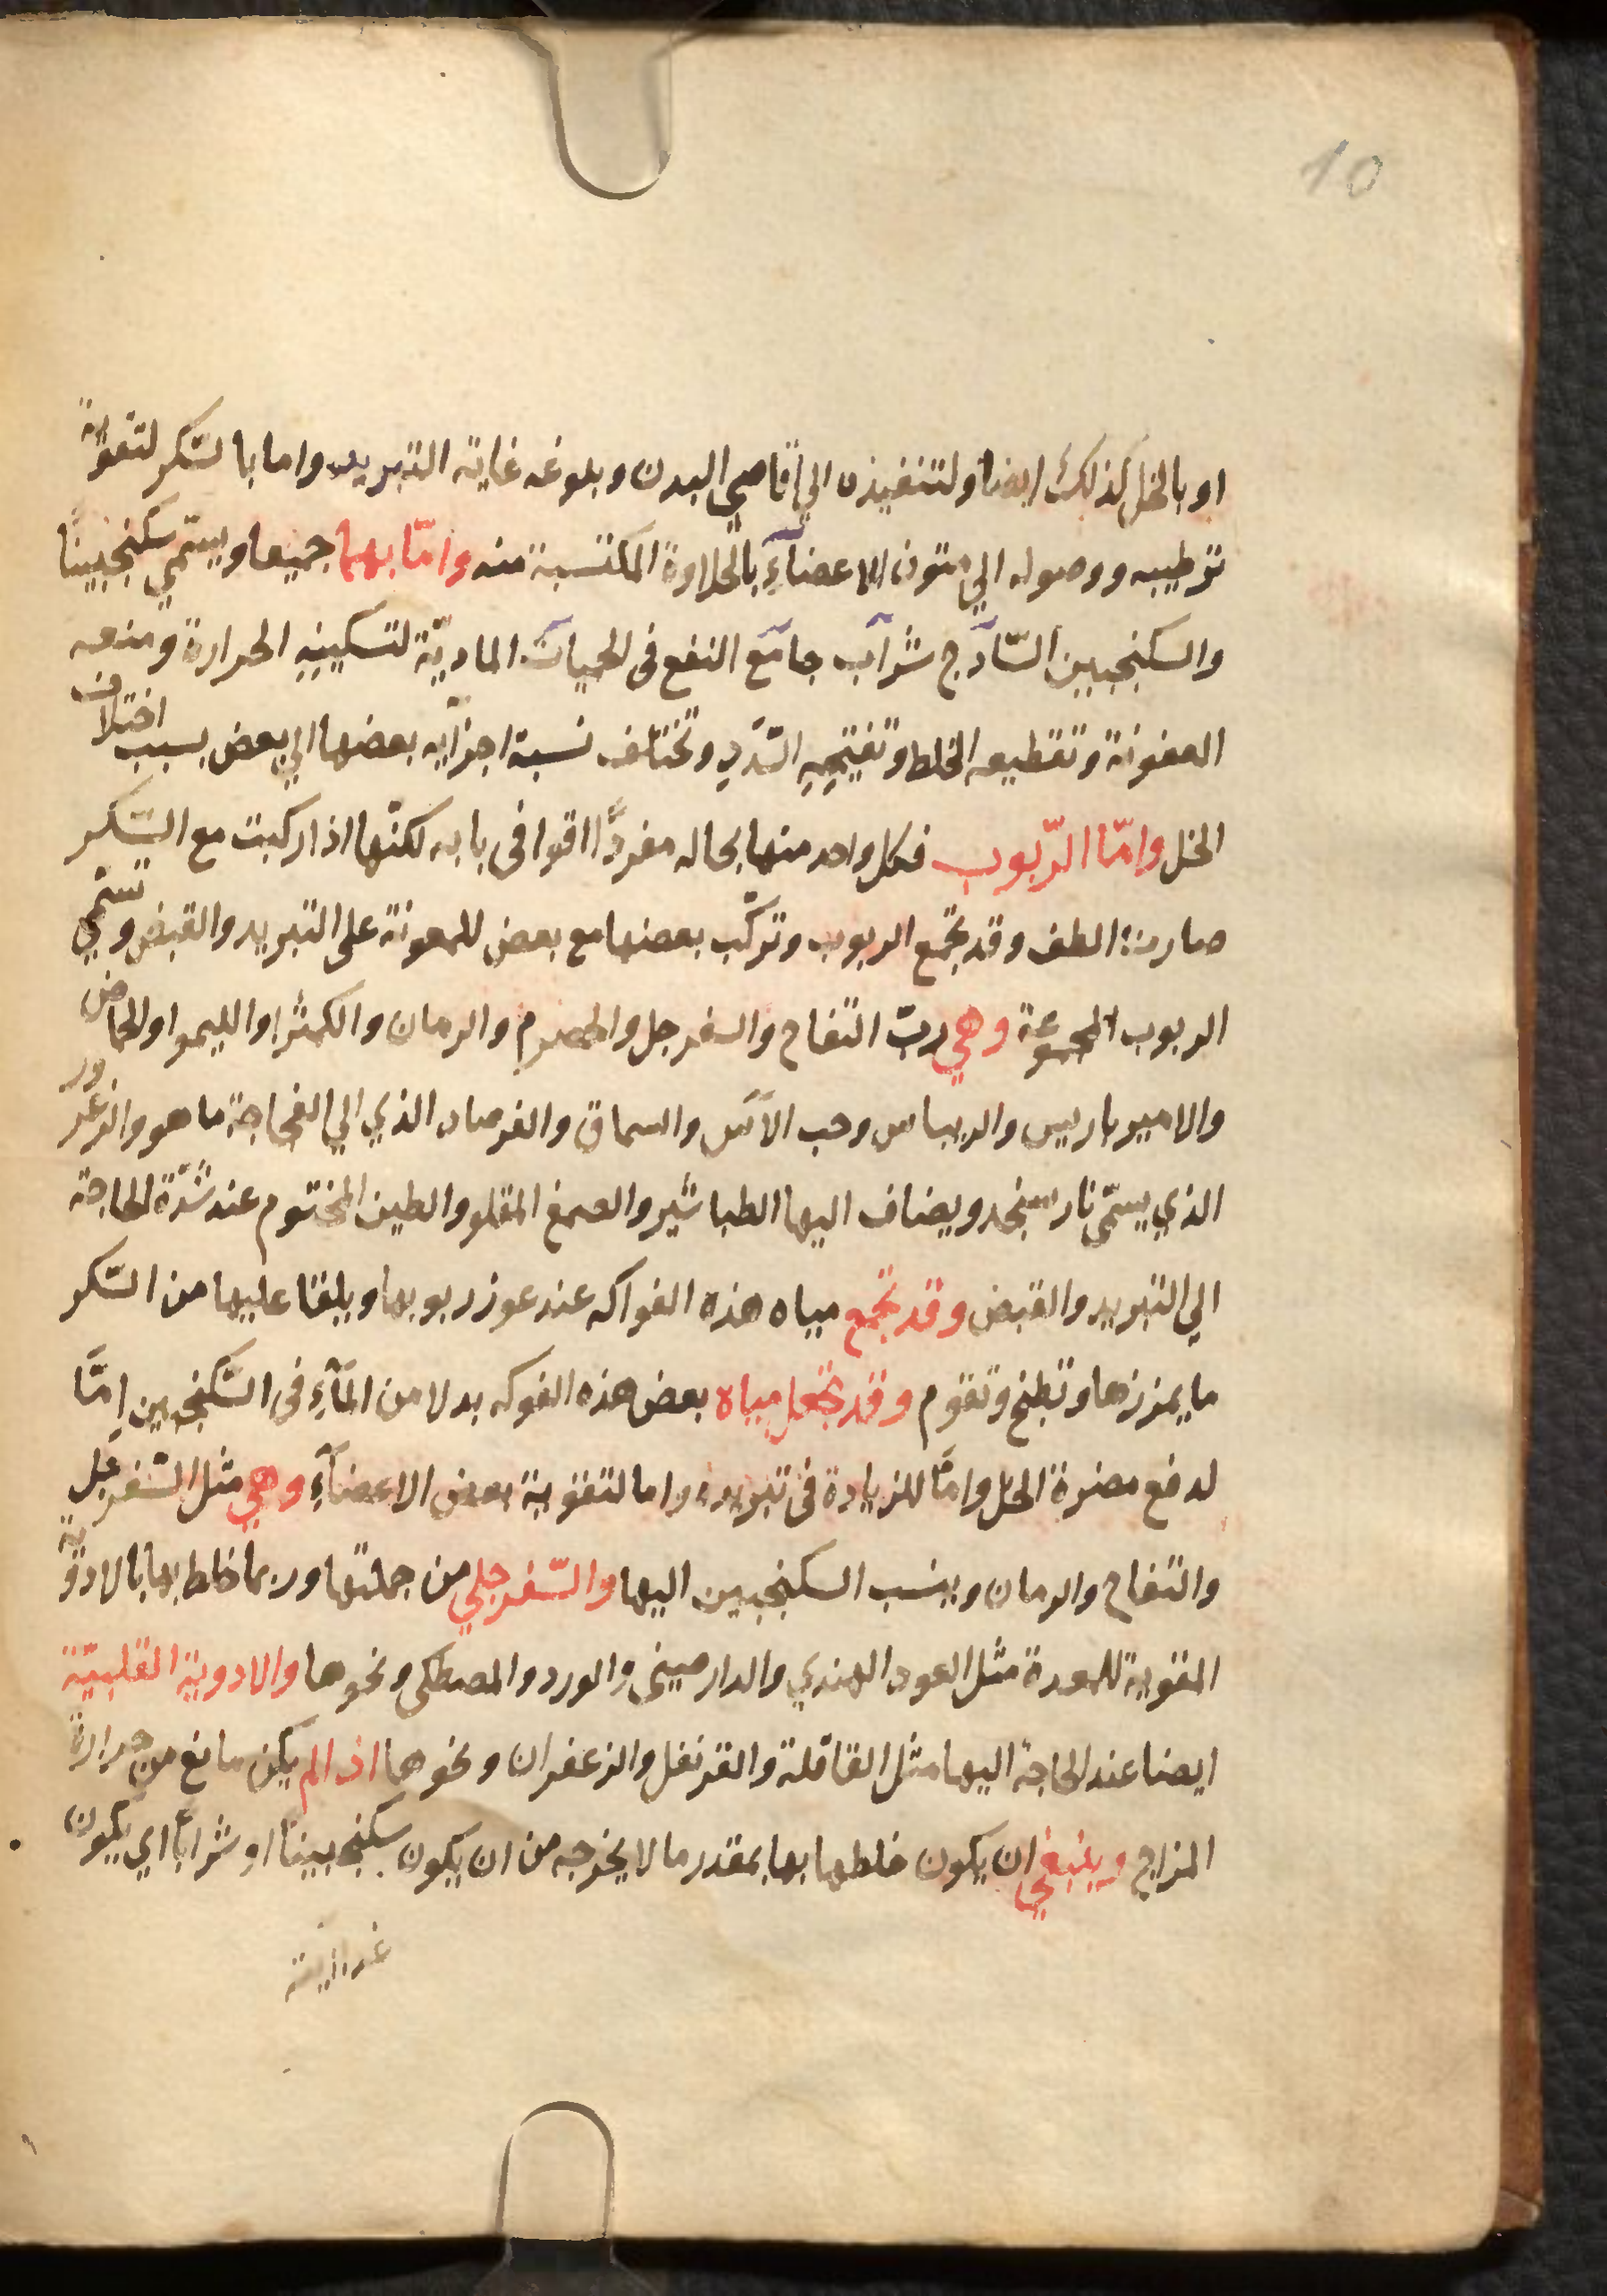 10
او بالخل كذلك ايضا ولتنفيذه الي اقاصي البدن وبلوغه غاية التبريد واما بالسّكر لتقوية
ترطيبه ووصوله الي متون الاعضآءِ بالحلاوة المكتسبة منه وامّا بهما جميعا ويسمّي سكنجبينًا
والسكنجبين السّاذج شراب جامع النفع فى الحميات الماديّة لتسكينِهِ الحرارة ومنعه
العفونة وتقطيعه الخلط وتفتيحِهِ السّدد وتختلف نسبة اجزآيه بعضها الي بعض بسبب اختلاف
الخل وامّا الرّبوب فكل واحد منها بحاله مفردًا اقوا فى بابه لكنّها اذا ركبت مع السّكر
صارت الطف وقد تجمع الربوب وتركّب بعضها مع بعض للمعونة على التبريد والقبض وتسمّي
الربوب المجموعة وهي ربّ التفاح والسفرجل والحصرم والرمان والكمثرا والليموا والحماض
والامبرباريس والريباس وحب الآس والسماق والفرصاد الذي الي الفجاجة ما هو والزعرور
الذي يسمّى نارسنجد ويضاف اليها الطباشير والصمغ المقلو والطين المختوم عند شدّة الحاجة
الي التبريد والقبض وقد تجمع مياه هذه الفواكه عند عوز ربوبها ويلقا عليها من السّكر
ما يمززها وتطبخ وتقوم وقد تجعل مياه بعض هذه الفوكه بدلا من المآءِ فى السّكنجبين اِمّا
لدفع مضرة الخل وامّا للزيادة فى تبريده واما لتقوية بعض الاعضآءِ وهي مثل السّفرجل
والتفاح والرمان وينسب السكنجبين اليها والسّفرجلي من جملتها وربما خلط بها بالادوية
المقوية للمعدة مثل العود الهندي والدارصينى والورد والمصطكى ونحوها والادوية القلبيّة
ايضا عند الحاجة اليها مثل القاقلة والقرنفل والزعفران ونحوها اذا لم يكن مانع من حرارة
المزاج وينبغي ان يكون خلطها بها بمقدر ما لا يخرجه من ان يكون سكنجبينًا او شرابًا اي يكون